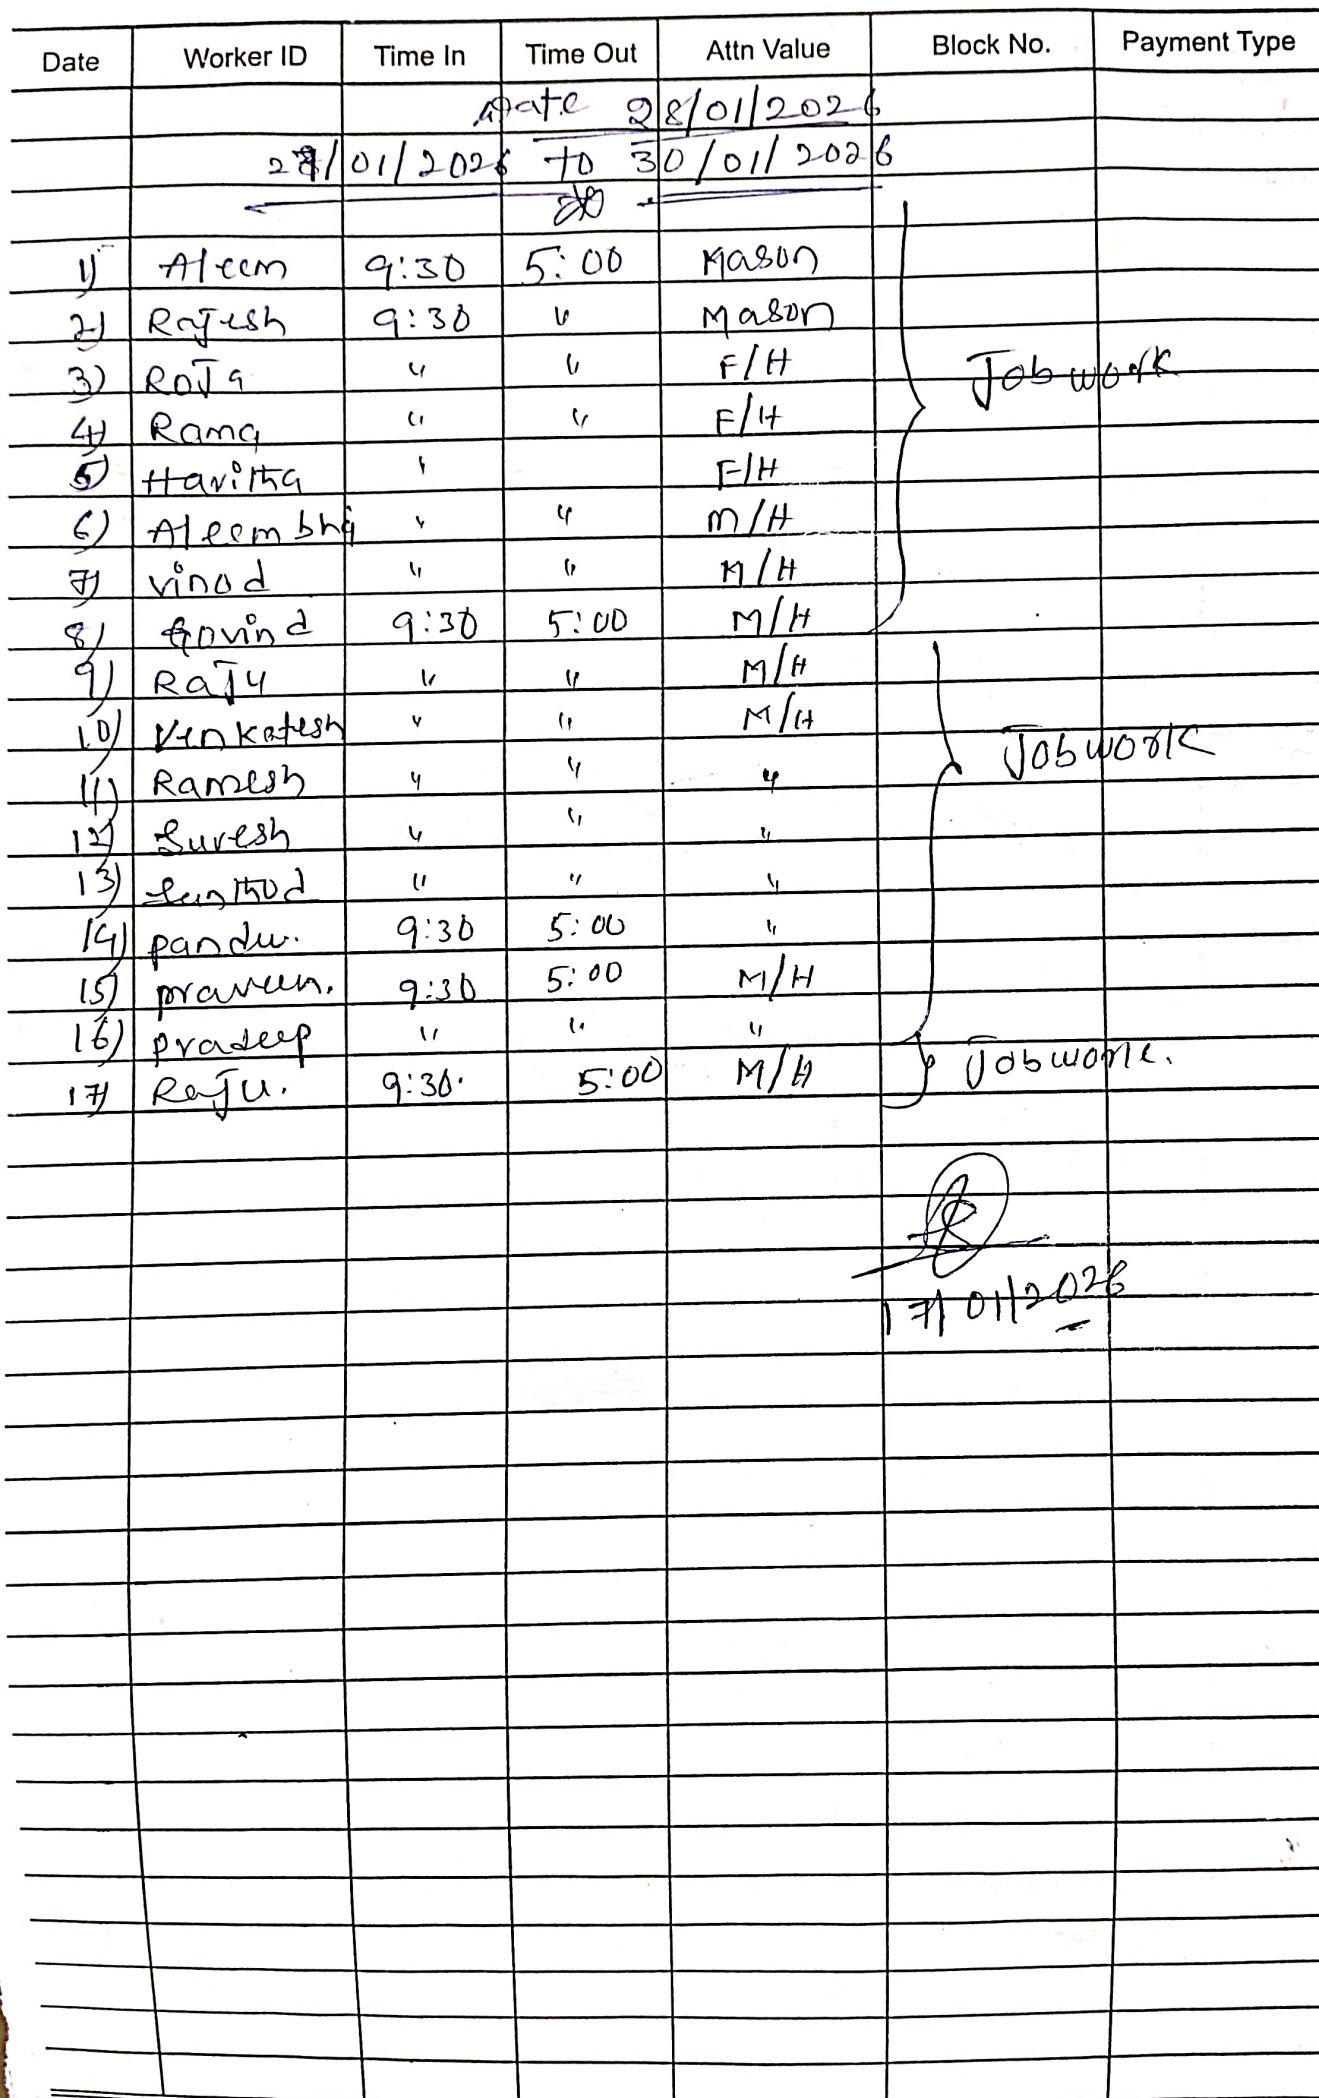 Date Worker ID Time In Time Out Attn Value Block No. Payment Type
Date 28/01/2026
28/01/2026 to 30/01/2026
1) Aleem 9:30 5:00 Mason
2) Rajesh 9:30 " Mason
3) Roja " " F/H
Jobwork
4) Rama " " F/H
5) Haritha " F/H
6) Aleem bhai " " M/H
7) Vinod " " M/H
8) Govind 9:30 5:00 M/H
9) Raju " " M/H
10) Venkatesh " " M/H
Jobwork
11) Ramesh " " "
12) Suresh " " "
13) " " "
14) pandu. 9:30 5:00 "
15) praveen. 9:30 5:00 M/H
16) pradeep " " "
17) Raju. 9:30. 5:00 M/H Jobwork.
17/01/2026